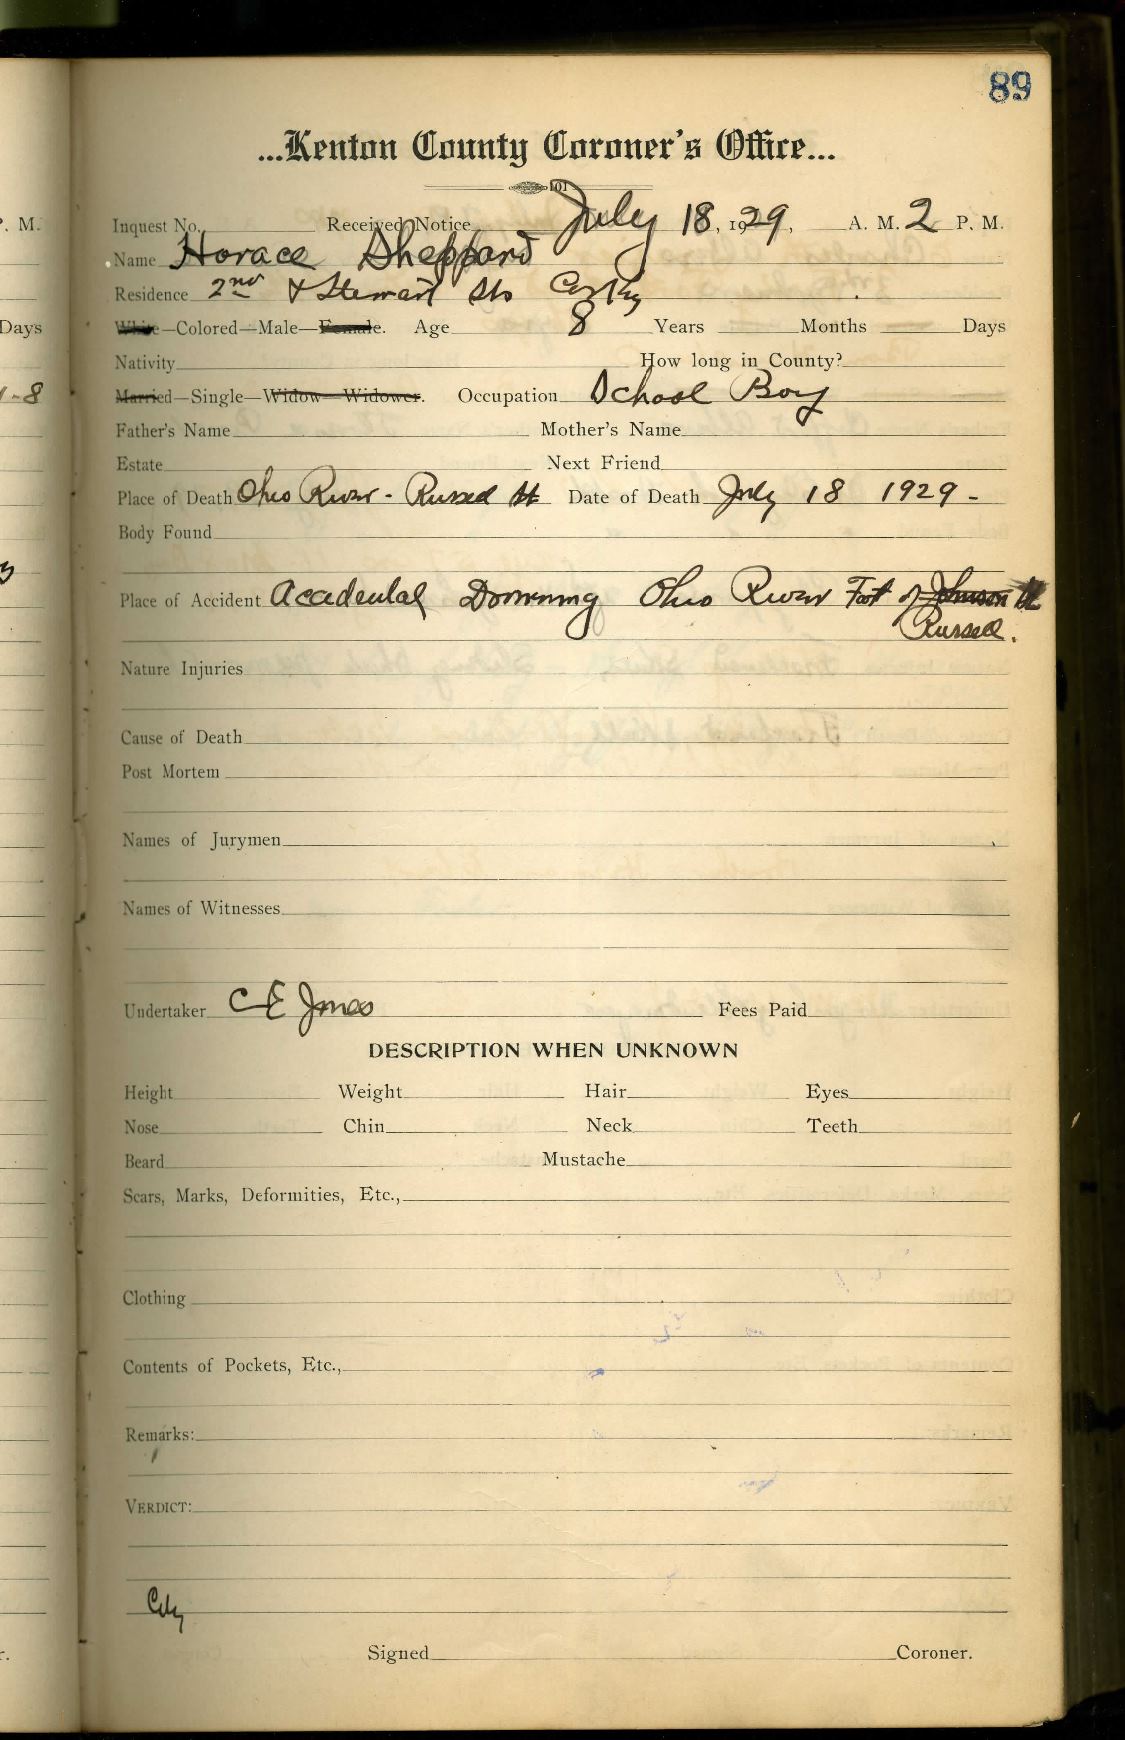 89
...Kenton County Coroner's Office...
101
Inquest No. Received Notice July 18, 1929, A. M. 2 P. M.
Name Horace Sheppard
Residence 2nd & Stewart Sts Cov Ky
White—Colored—Male—Female. Age 8 Years Months Days
Nativity How long in County?
Married—Single—Widow—Widower. Occupation School Boy
Father's Name Mother's Name
Estate Next Friend
Place of Death Ohio River - Russell St Date of Death July 18 1929 -
Body Found
Place of Accident Accidental Drowning Ohio River Foot of Johnson St
Russell.
Nature Injuries
Cause of Death
Post Mortem
Names of Jurymen
Names of Witnesses
Undertaker C E Jones Fees Paid
DESCRIPTION WHEN UNKNOWN
Height Weight Hair Eyes
Nose Chin Neck Teeth
Beard Mustache
Scars, Marks, Deformities, Etc.,
Clothing
Contents of Pockets, Etc.,
Remarks:
VERDICT:
City
Signed Coroner.
P. M.
Days
-8